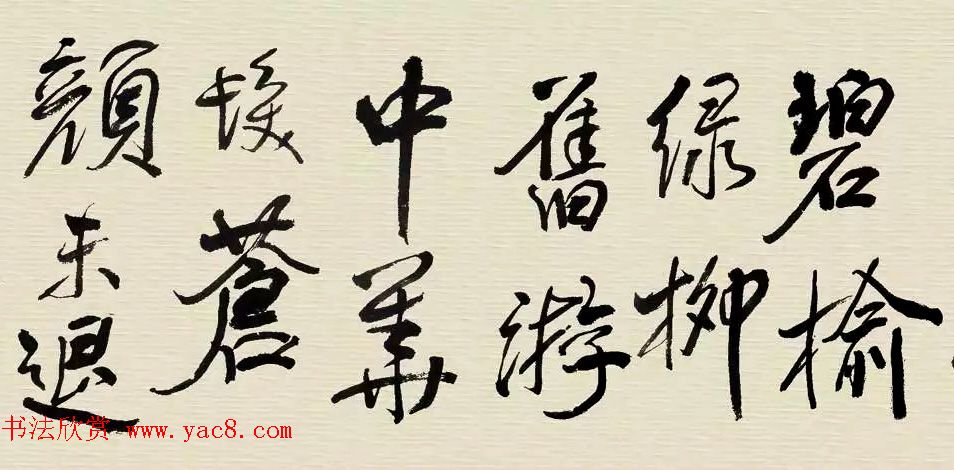 碧榆
绿柳
舊游
中
華
髮蒼
顔未退
书法欣赏 www.yac8.com